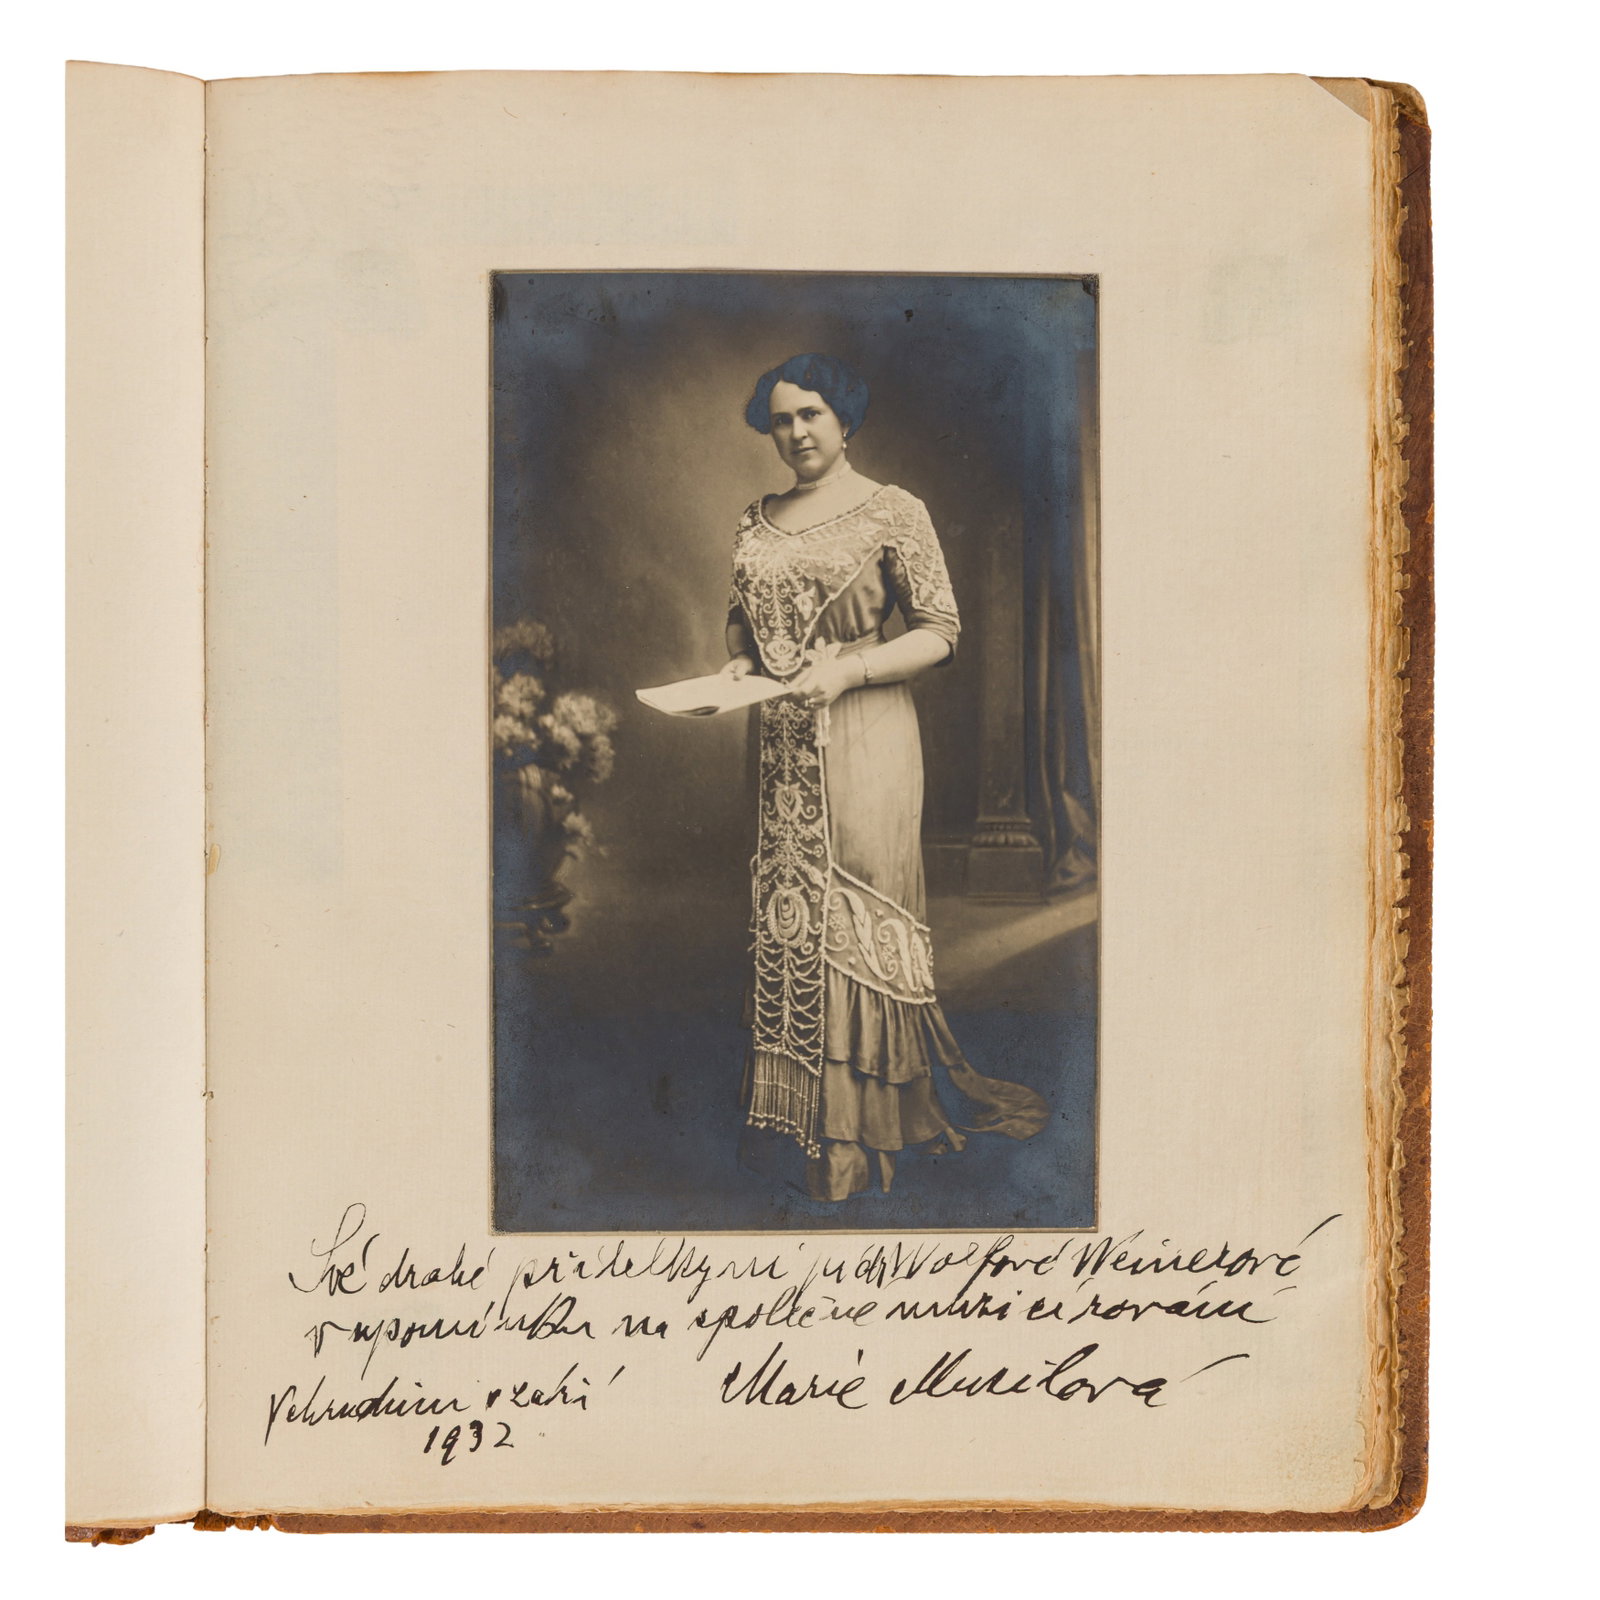 Své drahé přítelkyni pí dr Wolfové Weinerové
v upomínku na společné muzicírování
V Chrudimi v září Marie Musilová
1932